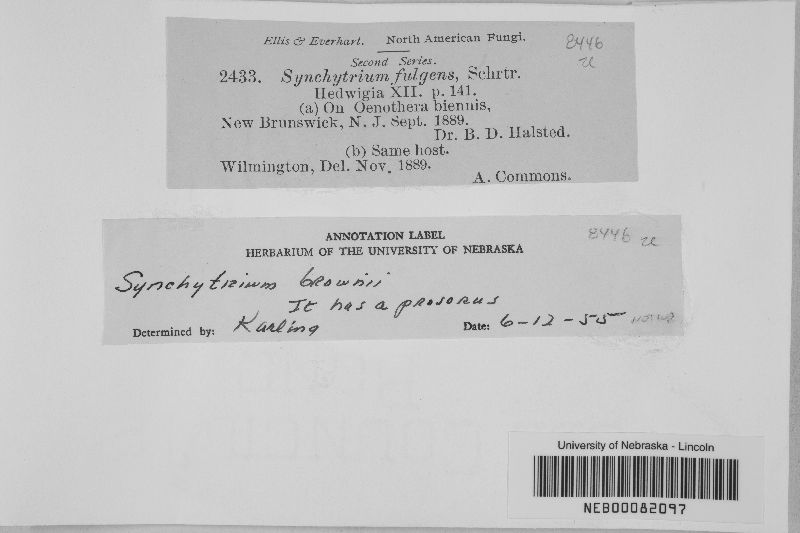 Ellis & Everhart. North American Fungi.
8446
Second Series.
2433. Synchytrium fulgens, Schrtr.
Hedwigia XII. p. 141.
(a) On Oenothera biennis,
New Brunswick, N. J. Sept. 1889.
Dr. B. D. Halsted.
(b) Same host.
Wilmington, Del. Nov. 1889.
A. Commons.
ANNOTATION LABEL
8446
HERBARIUM OF THE UNIVERSITY OF NEBRASKA
Synchytrium brownii
It has a prosorus
Determined by: Karling Date: 6-12-55
University of Nebraska - Lincoln
NEB00082097